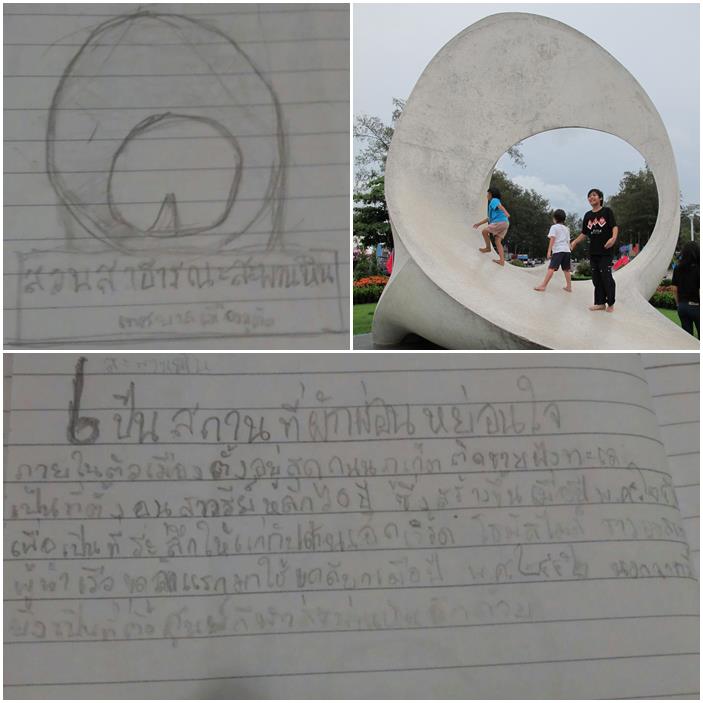 สวนสาธารณะสะพานหิน
สะพานหิน
เป็นสถานที่พักผ่อนหย่อนใจ
ภายในตัวเมือง ตั้งอยู่สุดถนนภูเก็ต ติดชายฝั่งทะเล
เป็นที่ตั้งอนุสาวรีย์หลัก 60 ปี ซึ่งสร้างขึ้นเมื่อปี พ.ศ.
เพื่อเป็นที่ระลึกให้แก่กัปตันเอ็ดเวิร์ด โธมัสไมล์ ชาว
ผู้นำเรือขุดลำแรกมาใช้ขุดดีบุกเมื่อปี พ.ศ. ๒๔๕๒ นอกจาก
ยังเป็นที่ตั้งศูนย์กีฬา